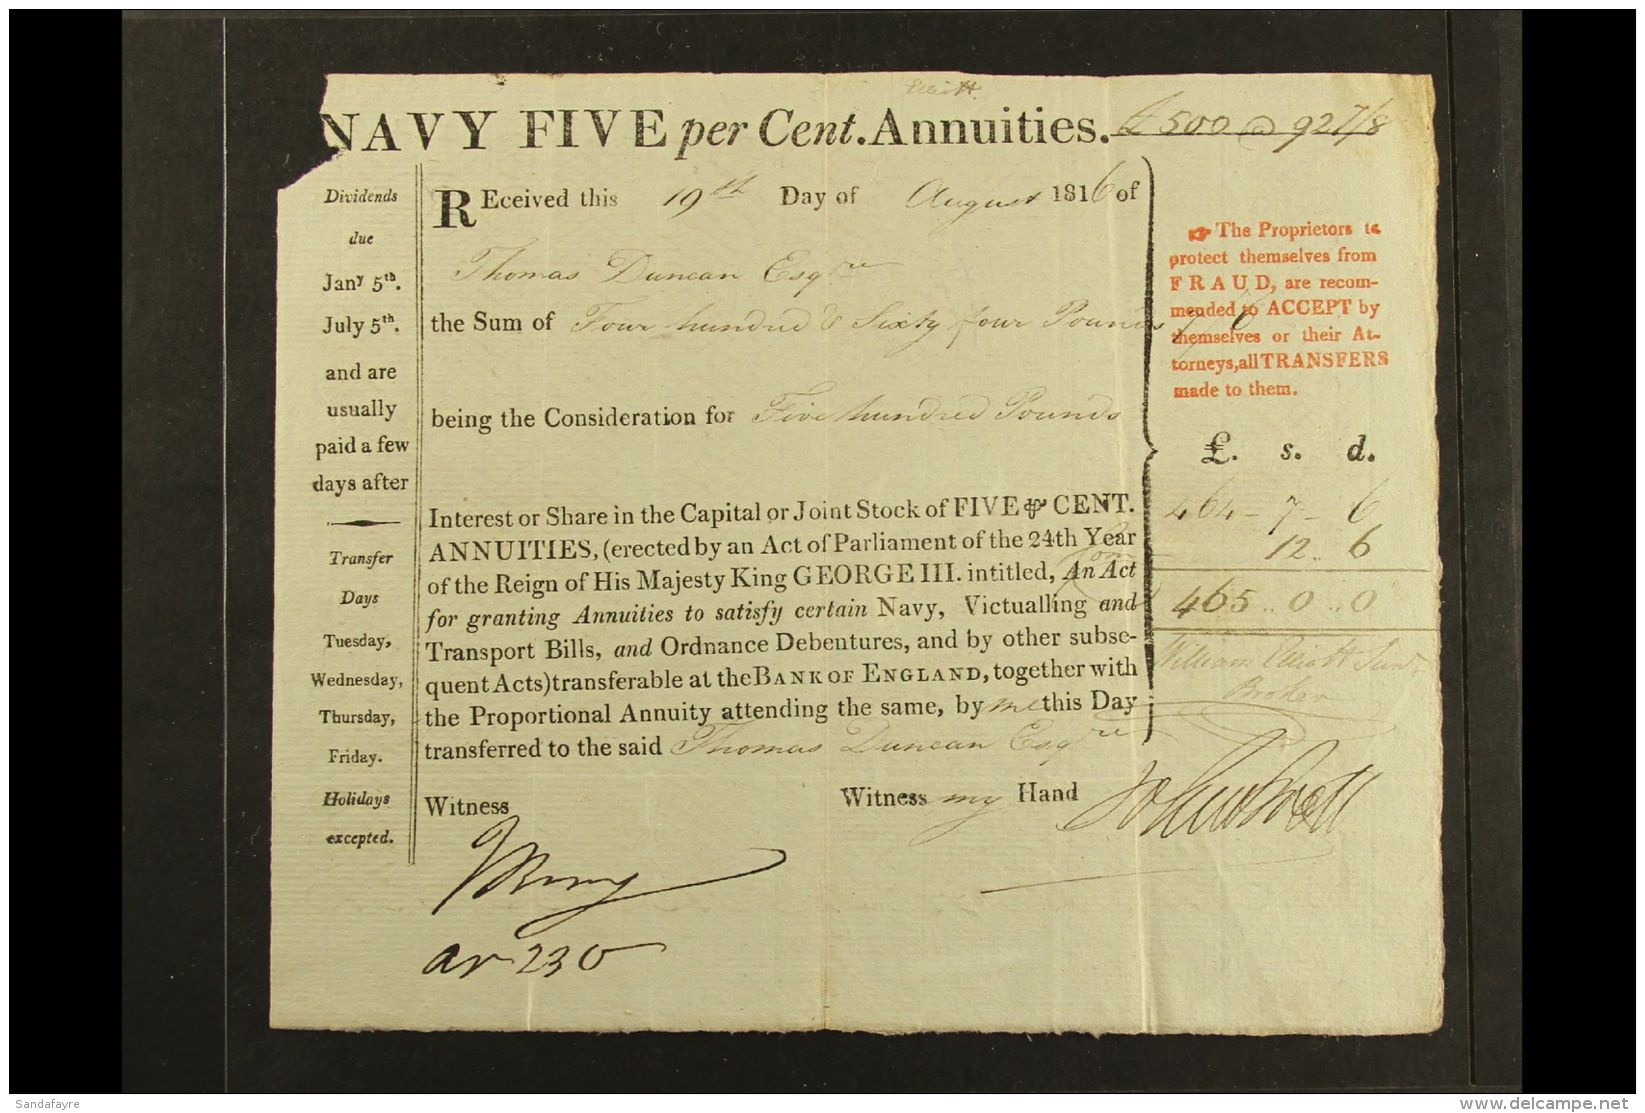 Elliott
NAVY FIVE per Cent. Annuities. £500 @ 92 7/8
Dividends
due
Janʸ 5ᵗʰ.
July 5ᵗʰ.
and are
usually
paid a few
days after
Transfer
Days
Tuesday,
Wednesday,
Thursday,
Friday.
Holidays
excepted.
REceived this 19th Day of August 1816 of
Thomas Duncan Esqre
the Sum of Four hundred & Sixty four Pounds 7/6
being the Consideration for Five hundred Pounds
Interest or Share in the Capital or Joint Stock of FIVE ⅌ CENT.
ANNUITIES, (erected by an Act of Parliament of the 24th Year
of the Reign of His Majesty King GEORGE III. intitled, An Act
for granting Annuities to satisfy certain Navy, Victualling and
Transport Bills, and Ordnance Debentures, and by other subse-
quent Acts) transferable at the BANK OF ENGLAND, together with
the Proportional Annuity attending the same, by me this Day
transferred to the said Thomas Duncan Esqre
Witness
Witness my Hand
230
☞ The Proprietors to
protect themselves from
FRAUD, are recom-
mended to ACCEPT by
themselves or their At-
torneys, all TRANSFERS
made to them.
£. s. d.
464 - 7 - 6
12 .. 6
465 .. 0 .. 0
William Elliott Junr
Broker
Sandafayre
delcampe.net